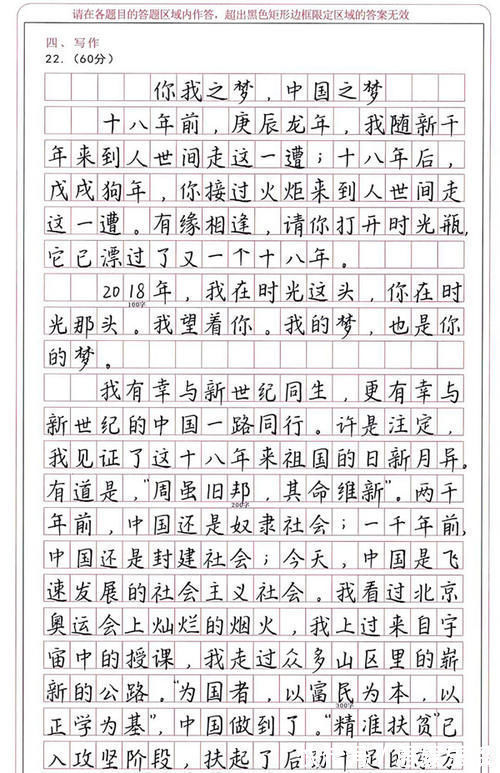 请在各题目的答题区域内作答，超出黑色矩形边框限定区域的答案无效
四、写作
22.（60分）
你我之梦，中国之梦
十八年前，庚辰龙年，我随新千
年来到人世间走这一遭；十八年后，
戊戌狗年，你接过火炬来到人世间走
这一遭。有缘相逢，请你打开时光瓶，
它已漂过了又一个十八年。
2018年，我在时光这头，你在时
100字
光那头。我望着你。我的梦，也是你
的梦。
我有幸与新世纪同生，更有幸与
新世纪的中国一路同行。许是注定，
我见证了这十八年来祖国的日新月异。
有道是，“周虽旧邦，其命维新”。两千
200字
年前，中国还是奴隶社会；一千年前，
中国还是封建社会；今天，中国是飞
速发展的社会主义社会。我看过北京
奥运会上灿烂的烟火，我上过来自宇
宙中的授课，我走过众多山区里的崭
新的公路。“为国者，以富民为本，以
300字
正学为基”，中国做到了。“精准扶贫”已
入攻坚阶段，扶起了后劲十足的